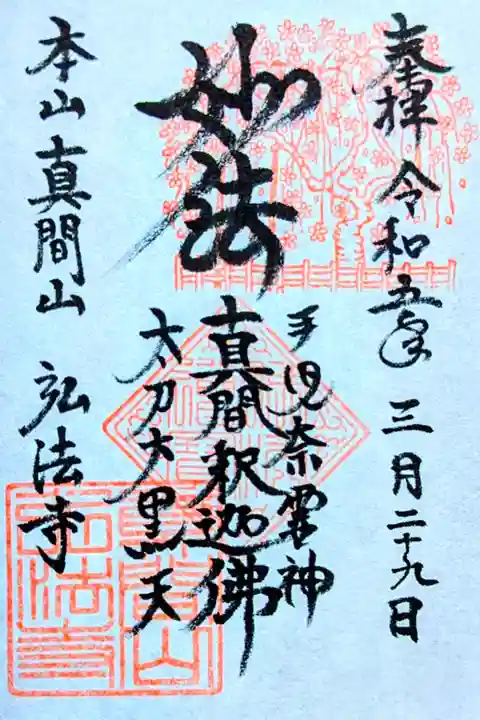 奉拝 令和五年 三月二十九日
妙法
手児奈霊神
真間釈迦佛
太刀大黒天
本山 真間山 弘法寺